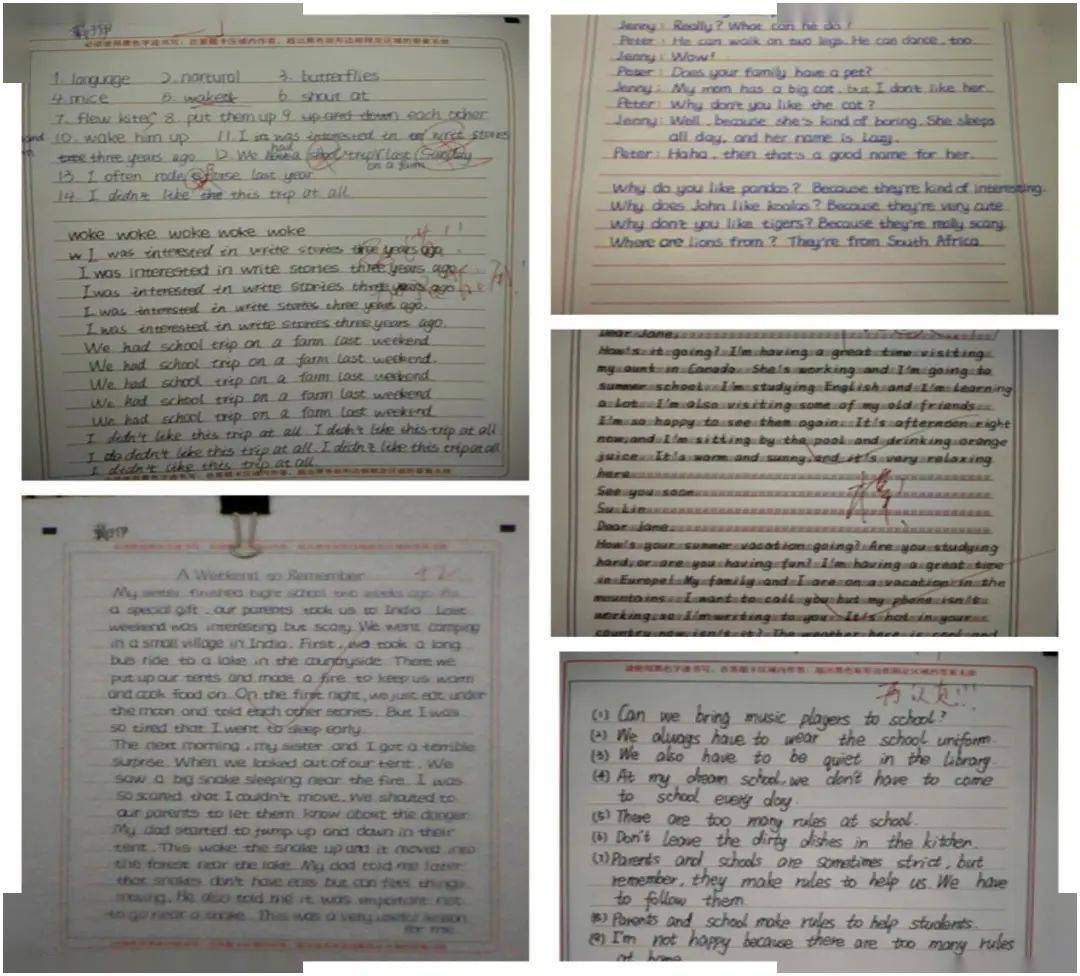 必须使用黑色字迹书写，在答题卡区域内作答，超出黑色矩形边框限定区域的答案无效
1. language 2. nartural 3. butterflies
4. mice 5. waked 6. shout at
7. flew kites 8. put them up 9. up and down each other
10. wake him up 11. I was interested in write stories
three years ago 12. We had a school trip last Sunday
on a farm
13. I often rode a horse last year
14. I didn't like the this trip at all
woke woke woke woke woke
I was interested in write stories three years ago.
I was interested in write stories three years ago
I was interested in write stories three years ago.
I was interested in write stories three years ago.
I was interested in write stories three years ago.
We had school trip on a farm last weekend
We had school trip on a farm last weekend.
We had school trip on a farm last weekend
We had school trip on a farm last weekend
We had school trip on a farm last weekend
I didn't like this trip at all I didn't like this trip at all
I do didn't like this trip at all. I didn't like this trip at all
I didn't like this trip at all.
A Weekend to Remember
My sister finished hight school two weeks ago. As
a special gift, our parents took us to India. Last
weekend was interesting but scary. We went camping
in a small village in India. First, we took a long
bus ride to a lake in the countryside. There we
put up our tents and made a fire to keep us warm
and cook food on. On the first night, we just eat under
the moon and told each other stories. But I was
so tired that I went to sleep early.
The next morning, my sister and I got a terrible
surprise. When we looked out of our tent, We
saw a big snake sleeping near the fire. I was
so scared that I couldn't move. We shouted to
our parents to let them know about the danger.
My dad started to jump up and down in their
tent. This woke the snake up and it moved into
the forest near the lake. My dad told me later
that snakes don't have ears but can feel things
moving. He also told me it was important not
to go near a snake. This was a very useful lesson
for me.
Jenny: Really? What can he do?
Peter: He can walk on two legs. He can dance, too.
Jenny: Wow!
Peter: Does your family have a pet?
Jenny: My mom has a big cat, but I don't like her.
Peter: Why don't you like the cat?
Jenny: Well, because she's kind of boring. She sleeps
all day, and her name is Lazy.
Peter: Haha, then that's a good name for her.
Why do you like pandas? Because they're kind of interesting.
Why does John like koalas? Because they're very cute
Why don't you like tigers? Because they're really scary.
Where are lions from? They're from South Africa.
Dear Jane,
How's it going? I'm having a great time visiting
my aunt in Canada. She's working and I'm going to
summer school. I'm studying English and I'm learning
a lot. I'm also visiting some of my old friends.
I'm so happy to see them again. It's afternoon right
now, and I'm sitting by the pool and drinking orange
juice. It's warm and sunny, and it's very relaxing
here.
See you soon.
Su Lin
Dear Jane,
How's your summer vacation going? Are you studying
hard, or are you having fun? I'm having a great time
in Europe! My family and I are on a vacation in the
mountains. I want to call you but my phone isn't
working, so I'm writing to you. It's hot in your
country now, isn't it? The weather here is cool and
(1) Can we bring music players to school?
(2) We always have to wear the school uniform
(3) We also have to be quiet in the library
(4) At my dream school, we don't have to come
to school every day.
(5) There are too many rules at school.
(6) Don't leave the dirty dishes in the kitchen.
(7) Parents and schools are sometimes strict, but
remember, they make rules to help us. We have
to follow them
(8) Parents and school make rules to help students.
(9) I'm not happy because there are too many rules
at home